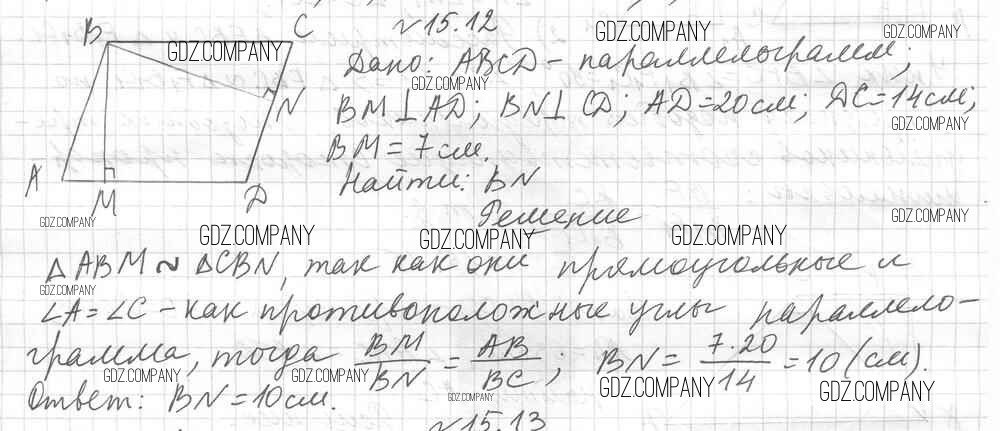 №15.12
B C
GDZ.COMPANY GDZ.COMPANY GDZ.COMPANY
Дано: ABCD - параллелограмм;
GDZ.COMPANY
BM⊥AD; BN⊥CD; AD=20см; DC=14см;
N
GDZ.COMPANY
BM=7см.
A M D
Найти: BN
Решение
GDZ.COMPANY GDZ.COMPANY
GDZ.COMPANY GDZ.COMPANY GDZ.COMPANY
△ABM ~ △CBN, так как они прямоугольные и
GDZ.COMPANY
∠A=∠C - как противоположные углы параллело-
грамма, тогда BM/BN = AB/BC; BN = 7·20/14 = 10 (см).
GDZ.COMPANY GDZ.COMPANY GDZ.COMPANY GDZ.COMPANY
Ответ: BN=10см.
GDZ.COMPANY
№15.13